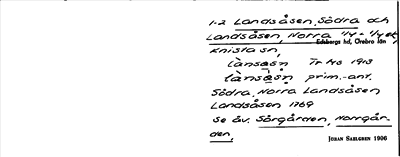 1-2 Landsåsen, Södra och
Landsåsen, Norra 1/4 - 1/4 mtl,
Edsbergs hd, Örebro län
Knista sn,
länsåsn Tr hs 1913
länsåsn prim.-ant.
Södra, Norra Landsåsen
Landsåsen 1769
Se äv. Sörgården, Norrgår-
den,
JÖRAN SAHLGREN 1906